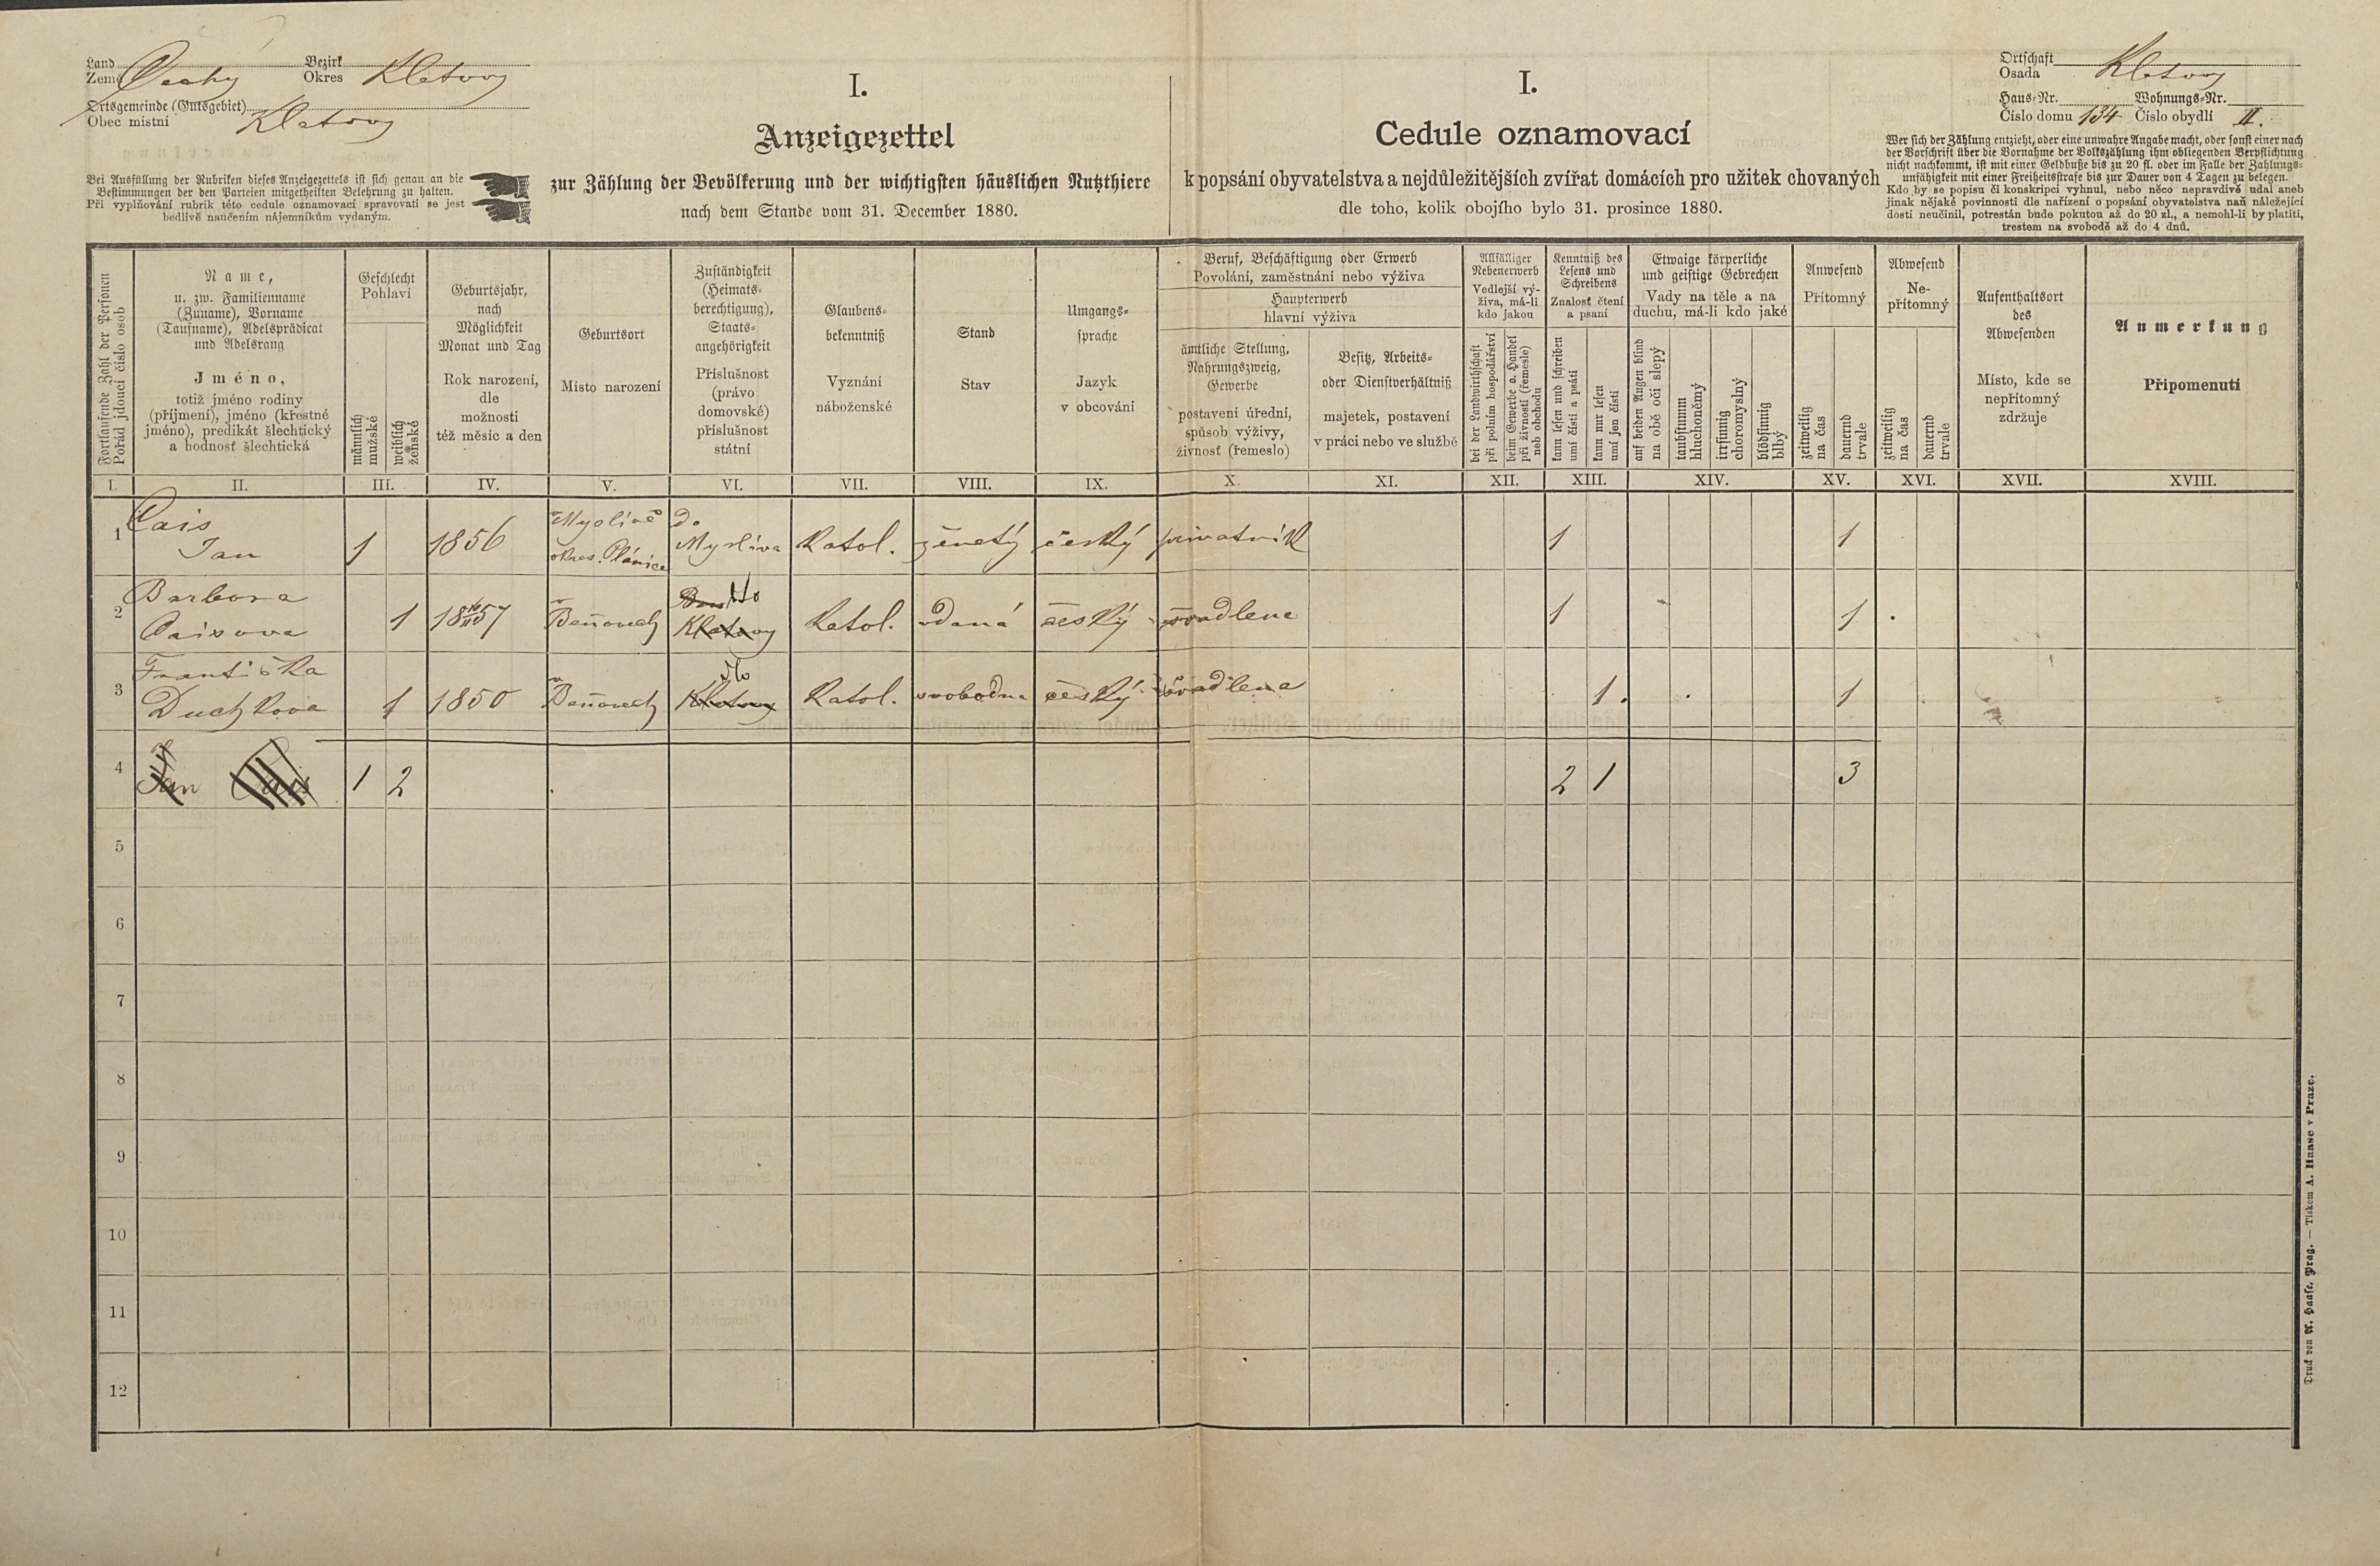 Land Bezirk
Země Čechy Okres Klatovy
Ortsgemeinde (Gutsgebiet)
Obec místní Klatovy
Bei Ausfüllung der Rubriken dieses Anzeigezettels ist sich genau an die
Bestimmungen der den Parteien mitgetheilten Belehrung zu halten.
Při vyplňování rubrik této cedule oznamovací spravovati se jest
bedlivě naučením nájemníkům vydaným.
I.
Anzeigezettel
zur Zählung der Bevölkerung und der wichtigsten häuslichen Nutzthiere
nach dem Stande vom 31. December 1880.
I.
Cedule oznamovací
k popsání obyvatelstva a nejdůležitějších zvířat domácích pro užitek chovaných
dle toho, kolik obojího bylo 31. prosince 1880.
Ortschaft
Osada Klatovy
Haus-Nr. Wohnungs-Nr.
Číslo domu 134 Číslo obydlí II.
Wer sich der Zählung entzieht, oder eine unwahre Angabe macht, oder sonst einer nach
der Vorschrift über die Vornahme der Volkszählung ihm obliegenden Verpflichtung
nicht nachkommt, ist mit einer Geldbuße bis zu 20 fl. oder im Falle der Zahlungs-
unfähigkeit mit einer Freiheitsstrafe bis zur Dauer von 4 Tagen zu belegen.
Kdo by se popisu či konskripci vyhnul, nebo něco nepravdivě udal aneb
jinak nějaké povinnosti dle nařízení o popsání obyvatelstva naň náležející
dosti neučinil, potrestán bude pokutou až do 20 zl., a nemohl-li by platiti,
trestem na svobodě až do 4 dnů.
Fortlaufende Zahl der Personen
Pořád jdoucí číslo osob
Name,
u. zw. Familienname
(Zuname), Vorname
(Taufname), Adelsprädicat
und Adelsrang
Jméno,
totiž jméno rodiny
(příjmení), jméno (křestné
jméno), predikát šlechtický
a hodnosť šlechtická
Geschlecht
Pohlaví
männlich
mužské
weiblich
ženské
Geburtsjahr,
nach
Möglichkeit
Monat und Tag
Rok narození,
dle
možnosti
též měsíc a den
Geburtsort
Místo narození
Zuständigkeit
(Heimats-
berechtigung),
Staats-
angehörigkeit
Příslušnost
(právo
domovské)
příslušnost
státní
Glaubens-
bekenntniß
Vyznání
náboženské
Stand
Stav
Umgangs-
sprache
Jazyk
v obcování
Beruf, Beschäftigung oder Erwerb
Povolání, zaměstnání nebo výživa
Haupterwerb
hlavní výživa
ämtliche Stellung,
Nahrungszweig,
Gewerbe
postavení úřední,
spůsob výživy,
živnosť (řemeslo)
Besitz, Arbeits-
oder Dienstverhältniß
majetek, postavení
v práci nebo ve službě
Allfälliger
Nebenerwerb
Vedlejší vý-
živa, má-li
kdo jakou
bei der Landwirthschaft
při polním hospodářství
beim Gewerbe o. Handel
při živnosti (řemesle)
neb obchodu
Kenntniß des
Lesens und
Schreibens
Znalosť čtení
a psaní
kann lesen und schreiben
umí čísti a psáti
kann nur lesen
umí jen čísti
Etwaige körperliche
und geistige Gebrechen
Vady na těle a na
duchu, má-li kdo jaké
auf beiden Augen blind
na obě oči slepý
taubstumm
hluchoněmý
irrsinnig
choromyslný
blödsinnig
blbý
Anwesend
Přítomný
zeitweilig
na čas
dauernd
trvale
Abwesend
Ne-
přítomný
zeitweilig
na čas
dauernd
trvale
Aufenthaltsort
des
Abwesenden
Místo, kde se
nepřítomný
zdržuje
Anmerkung
Připomenutí
I. II. III. IV. V. VI. VII. VIII. IX. X. XI. XII. XIII. XIV. XV. XVI. XVII. XVIII.
1 Cais
Jan 1 1856 okres. Plánice Myslíva Katol. ženetý český privatník 1 1
2 Barbora
Caisova 1 1857 Beňovech Klatovy Katol. vdaná český švadlena 1 1
3 Františka
Duchkova 1 1850 Beňovech Klatovy Katol. svobodna český švadlena 1. 1
4 Jan Cais 1 2 2 1 3
5
6
7
8
9
10
11
12
Druck von A. Haase, Prag. — Tiskem A. Haase v Praze.